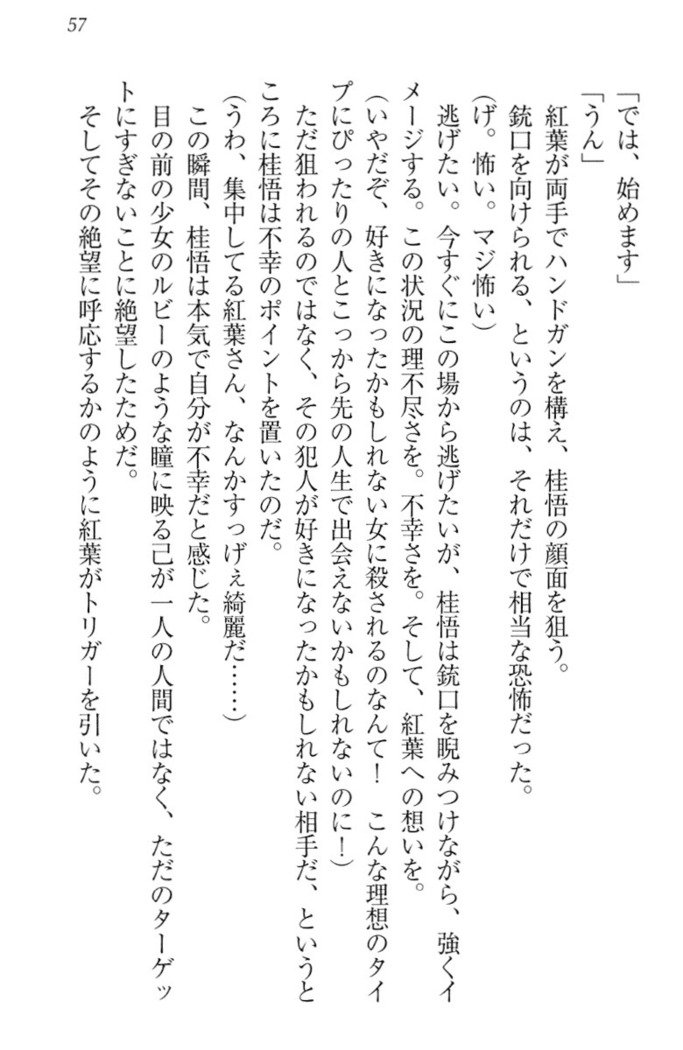 57
「では、始めます」
「うん」
　紅葉が両手でハンドガンを構え、桂悟の顔面を狙う。
　銃口を向けられる、というのは、それだけで相当な恐怖だった。
（げ。怖い。マジ怖い）
　逃げたい。今すぐにこの場から逃げたいが、桂悟は銃口を睨みつけながら、強くイ
メージする。この状況の理不尽さを。不幸さを。そして、紅葉への想いを。
（いやだぞ、好きになったかもしれない女に殺されるのなんて！　こんな理想のタイ
プにぴったりの人とこっから先の人生で出会えないかもしれないのに！）
　ただ狙われるのではなく、その犯人が好きになったかもしれない相手だ、というと
ころに桂悟は不幸のポイントを置いたのだ。
（うわ、集中してる紅葉さん、なんかすっげぇ綺麗だ……）
　この瞬間、桂悟は本気で自分が不幸だと感じた。
　目の前の少女のルビーのような瞳に映る己が一人の人間ではなく、ただのターゲッ
トにすぎないことに絶望したためだ。
　そしてその絶望に呼応するかのように紅葉がトリガーを引いた。